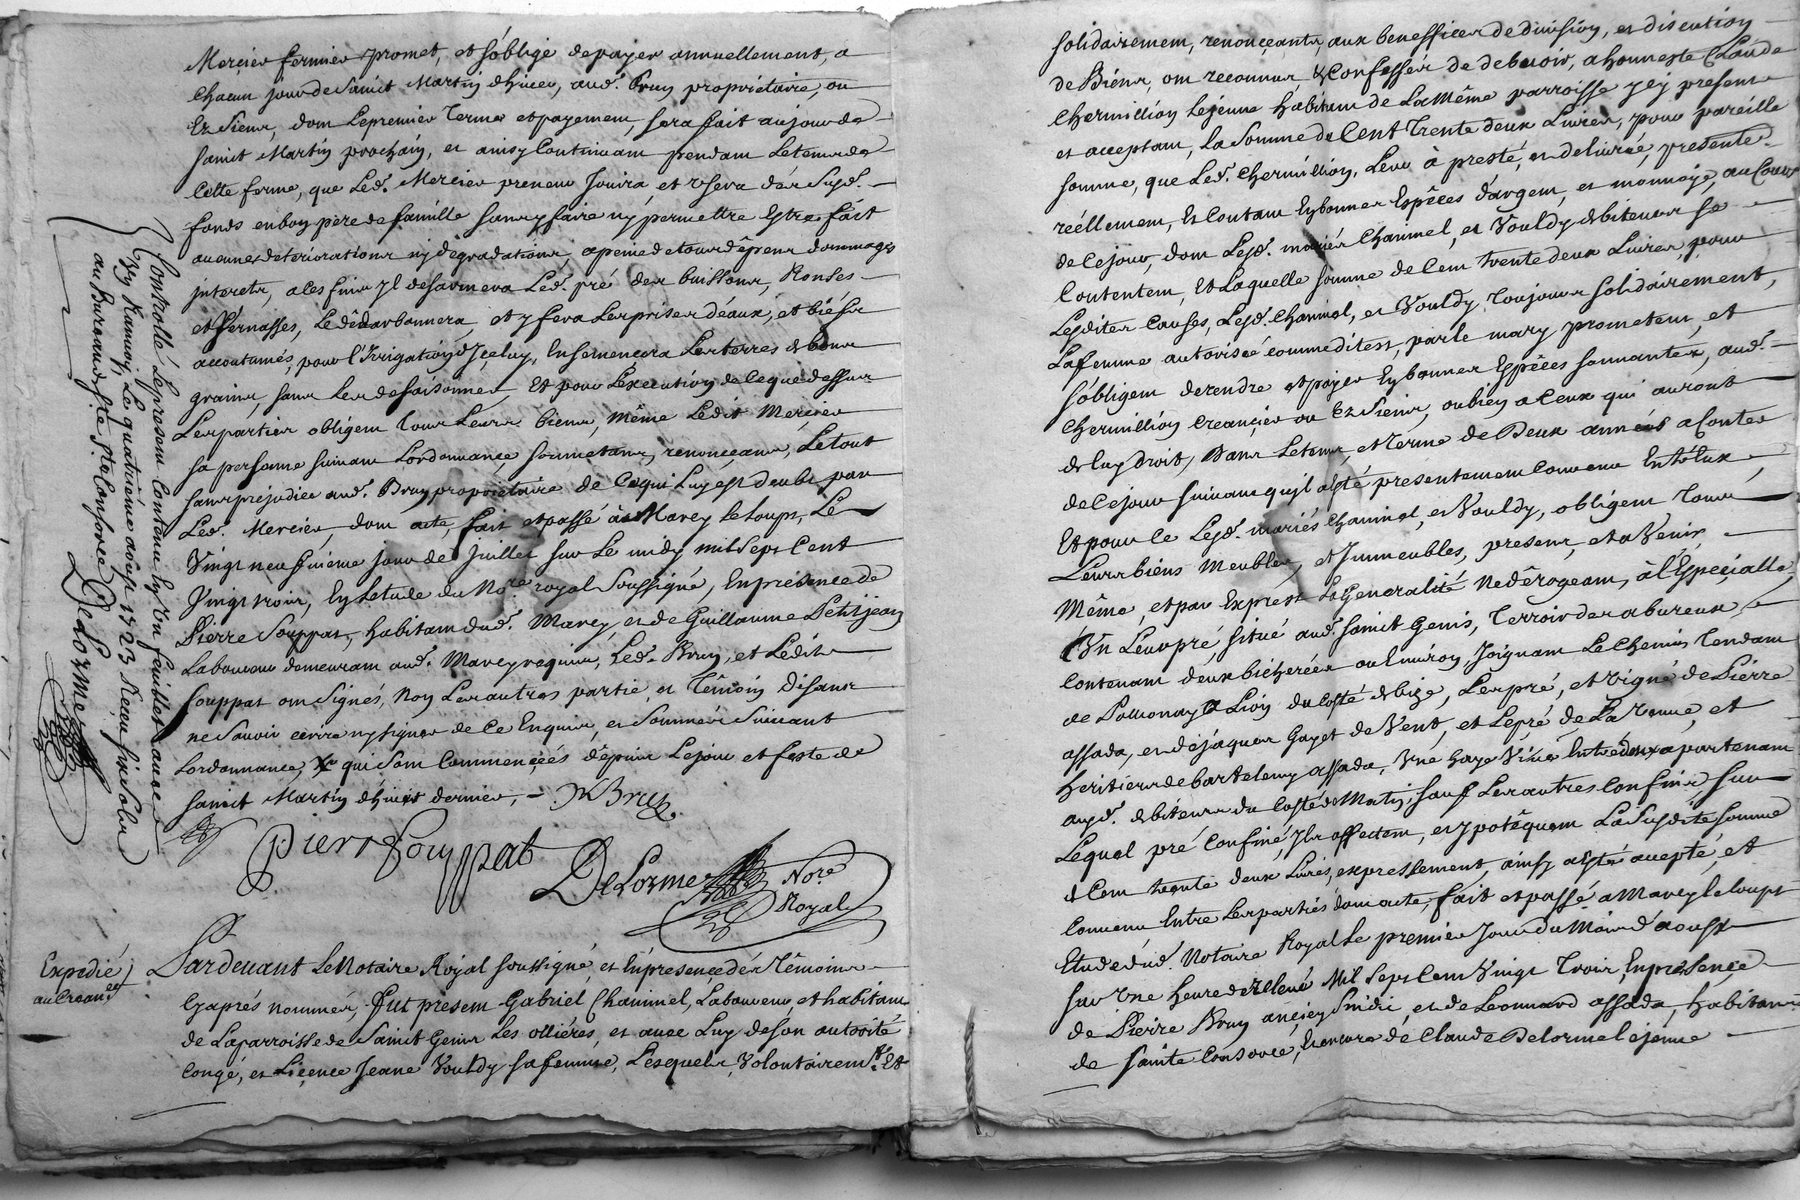 Mercier fermier promet, et s'oblige de payer annuellement, a
chacun jour de Saint Martin d'hiver, aud. Bruy propriétaire, ou
Ez Siens, dont le premier Terme et payement, sera fait au jour de
Saint Martin prochain, et ainsy Continuant pendant le temps de
Cette ferme, que Led. Mercier preneur Jouira, et Usera des Susd.
fonds en bon père de famille sans y faire ny permettre Estre fait
aucunes deteriorations ny dégradations, a peine de tous dépens dommages
Interets, a les fins yl desarmera Led. pré des buissons, Ronses
et Vernasses, Le dédarbonnera, et y fera Les prises d'eaux, et biéfs
accoutumés, pour l'Irrigation d'Jceluy, Ensemencera Les terres de bons
grains, sans Les dessaisonner, Et pour L'execution de Ceque dessus
Les parties obligent Tous Leurs biens, même Ledit Mercier
sa personne suivant L'ordonnance, soumetans, renonçeans, Le tout
sans prejudice aud. Bruy propriétaire de Ce qui Luy est deubt par
Led. Mercier, dont acte, fait et passé à Marcy le loup, Le
Vingt neufvieme jour de Juillet sur Le midy mil Sept Cent
Vingt trois, En Letude du No.re royal Soussigné, En présence de
Pierre Souppat, habitant dud. Marcy, et de Guillaume Petitjean
Laboureur demeurant aud. Marcy requis, Led. Bruy, et Ledit
Souppat ont Signés, Non Les autres partie et Témoin disans
ne Savoir ecrire ny signer de Ce Enquis, et Sommés Suivant
Lordonnance, qui sont Commencées dépuis Le jour et feste de
Saint Martin d'hivert dernier, - Bruy
Pierre Souppat
DeLorme No.re
Royal
Controllé Le present Contenu En Un feuillet aure
En Renvoy Le quatrieme aoust 1723 Receu six sols
au Bureau de Ste Consorce DeLorme
Expedié
au Crean.er
Pardevant Le Notaire Royal soussigné, et En presence dés Témoins
Cy aprés nommés, fut present Gabriel Chaninel, Laboureur et habitant
de La parroisse de Saint Genis Les ollières, et avec Luy de son autorité
Congé, et Liçence Jeane Vouldy sa femme, Lesquels, Volontairem.t Et
solidairement, renonçeants aux beneffices de division, et discution
de Biéns, ont reconnus & Confessés de debvoir, a honneste Claude
Chermillion Lejeune habitant de La Même parroisse yçy present
et acceptant, La Somme de Cent Trente deux Livres, pour pareille
somme, que Led. Chermillion, Leur à presté, et delivrée, presente.
réellement, Et Contant En bonnes Espéces d'argent, et monnoye, au Cours
de Ce jour, dont Lesd. mariés Chaninel, et Vouldy debiteurs se
Contentent, Et Laquelle somme de Cent trente deux Livres, pour
Lesdites Causes, Lesd. Chaninel, et Vouldy Toujours solidairement,
La femme autorisée comme dit est, par le mary prometent, et
s'obligent de rendre et payer En bonnes Espéces sonnantes, aud.
Chermillion Creançier ou Ez Siens, ou bien a Ceux qui auront
de luy droit, Dans Le tems, et Terme de Deux années a Conter
de Ce jour suivant quyl a été presentement Convenu Entre Eux,
Et pour Ce Lesd. mariés Chaninel, et Vouldy, obligent Tous
Leurs biens Meubles, et Jmmeubles, presens, et a Venir,
Même, et par Exprest La Generalité Ne dérogeant, à L'Especialle,
Un Leur pré, situé aud. Saint Genis, Terroir des abureux,
Contenant deux bicherées ou Environ, Joignant Le Chemin Tendant
de Pollionay a Lion du Costé de bize, Les pré, et vigne de Pierre
assada, et de jaques Gayet de Vent, et Le pré de La Veuve, et
heritiers de bartelemy assada, Une haye Vive Entredeux apartenant
ausd. debiteurs du Costé de Matin, sauf Les autres Confins, sur
Lequel pré Confiné, Jls affectent, et ypotéquent La Susdite somme
de Cent trente deux Livres, expressement, ainsy a été accepté, et
Convenu Entre Les parties dont acte, fait et passé a Marcy le loup
Etude dud. Notaire Royal le premier Jour du Mois d'aoust
sur Une heure de relevé Mil Sept Cent Vingt Trois, En présençe
de Pierre Bruy ançien Sindic, et de Leonnard assada, habitans
de Sainte Consorce, Encore de Claude Delorme lejeune